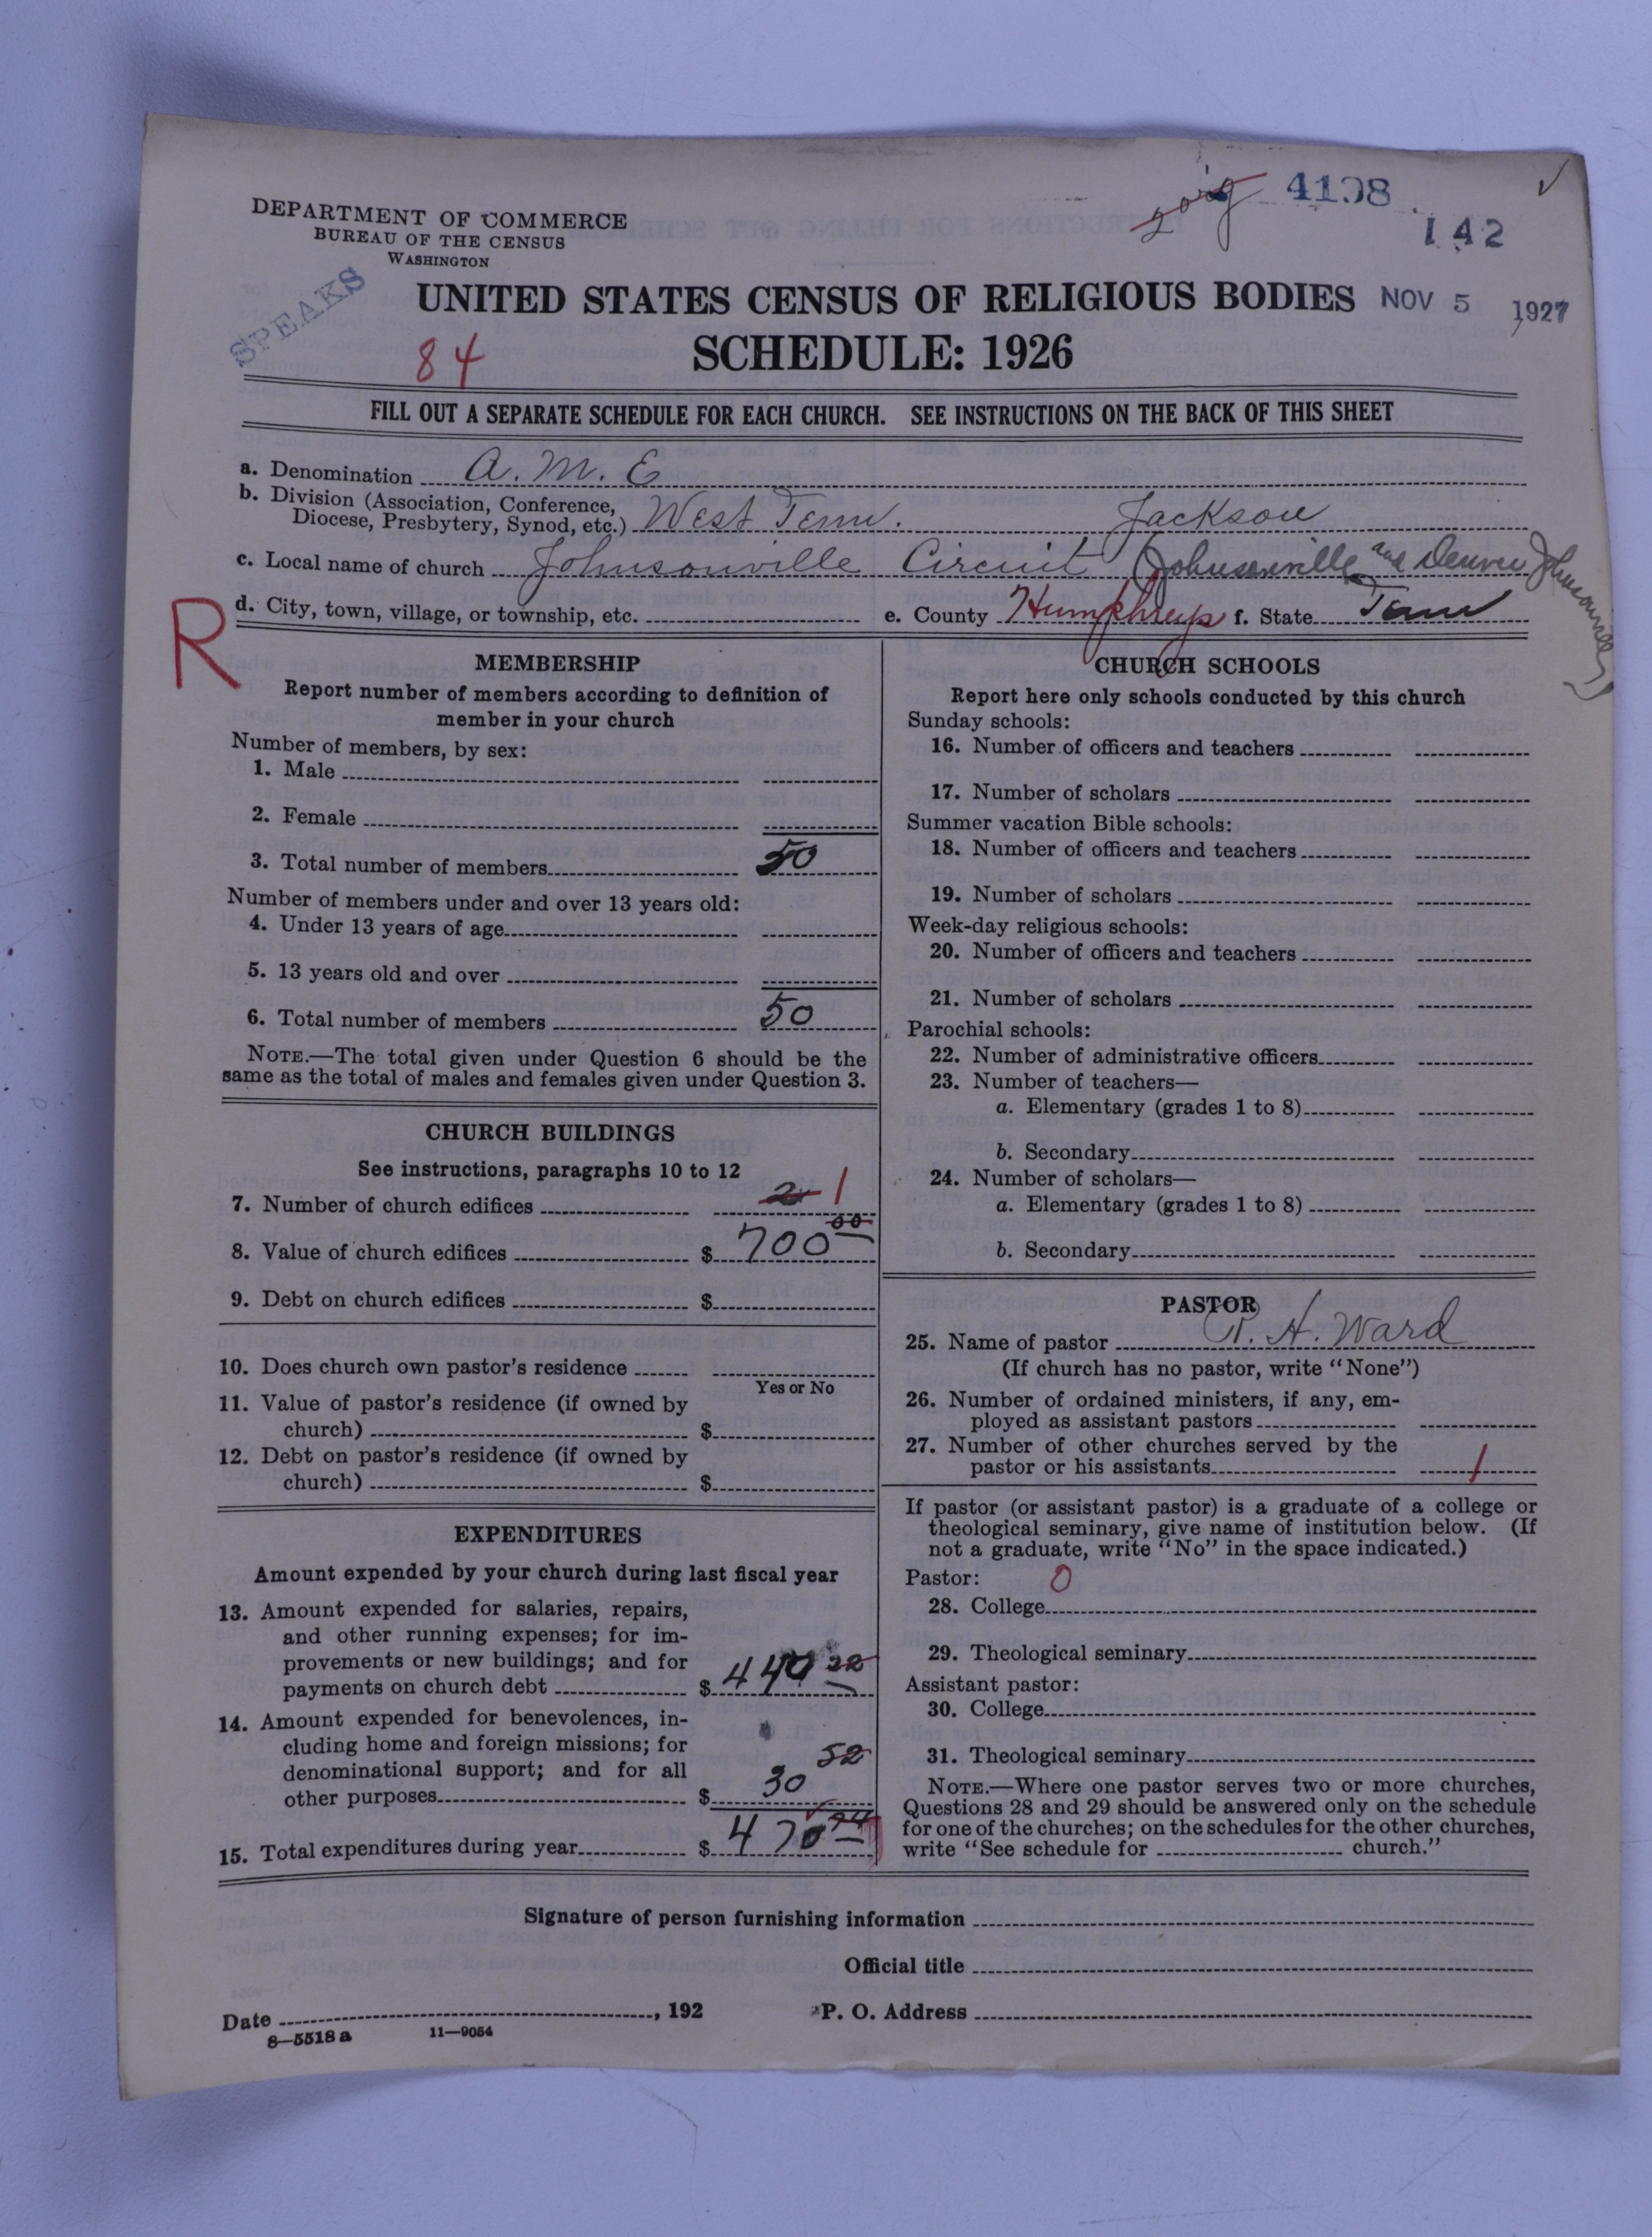 4108
142
DEPARTMENT OF COMMERCE
BUREAU OF THE CENSUS
WASHINGTON
SPEAKS
UNITED STATES CENSUS OF RELIGIOUS BODIES NOV 5 1927
84 SCHEDULE: 1926
FILL OUT A SEPARATE SCHEDULE FOR EACH CHURCH. SEE INSTRUCTIONS ON THE BACK OF THIS SHEET
a. Denomination A. M. E
b. Division (Association, Conference,
Diocese, Presbytery, Synod, etc.) West Tenn. Jackson
c. Local name of church Johnsonville Circuit Johnsonville and Denver Johnsonville
d. City, town, village, or township, etc. e. County Humphreys f. State Tenn
R
MEMBERSHIP
Report number of members according to definition of
member in your church
Number of members, by sex:
1. Male
2. Female
3. Total number of members 50
Number of members under and over 13 years old:
4. Under 13 years of age
5. 13 years old and over
6. Total number of members 50
NOTE.—The total given under Question 6 should be the
same as the total of males and females given under Question 3.
CHURCH BUILDINGS
See instructions, paragraphs 10 to 12
7. Number of church edifices 2 1
8. Value of church edifices $ 700 00
9. Debt on church edifices $
10. Does church own pastor's residence
Yes or No
11. Value of pastor's residence (if owned by
church) $
12. Debt on pastor's residence (if owned by
church) $
EXPENDITURES
Amount expended by your church during last fiscal year
13. Amount expended for salaries, repairs,
and other running expenses; for im-
provements or new buildings; and for
payments on church debt $ 440 22
14. Amount expended for benevolences, in-
cluding home and foreign missions; for
denominational support; and for all
other purposes $ 30 52
15. Total expenditures during year $ 470 74
CHURCH SCHOOLS
Report here only schools conducted by this church
Sunday schools:
16. Number of officers and teachers
17. Number of scholars
Summer vacation Bible schools:
18. Number of officers and teachers
19. Number of scholars
Week-day religious schools:
20. Number of officers and teachers
21. Number of scholars
Parochial schools:
22. Number of administrative officers
23. Number of teachers—
a. Elementary (grades 1 to 8)
b. Secondary
24. Number of scholars—
a. Elementary (grades 1 to 8)
b. Secondary
PASTOR
25. Name of pastor P. H. Ward
(If church has no pastor, write "None")
26. Number of ordained ministers, if any, em-
ployed as assistant pastors
27. Number of other churches served by the
pastor or his assistants 1
If pastor (or assistant pastor) is a graduate of a college or
theological seminary, give name of institution below. (If
not a graduate, write "No" in the space indicated.)
Pastor: 0
28. College
29. Theological seminary
Assistant pastor:
30. College
31. Theological seminary
NOTE.—Where one pastor serves two or more churches,
Questions 28 and 29 should be answered only on the schedule
for one of the churches; on the schedules for the other churches,
write "See schedule for church."
Signature of person furnishing information
Official title
Date , 192 P. O. Address
8—5518 a 11—9054